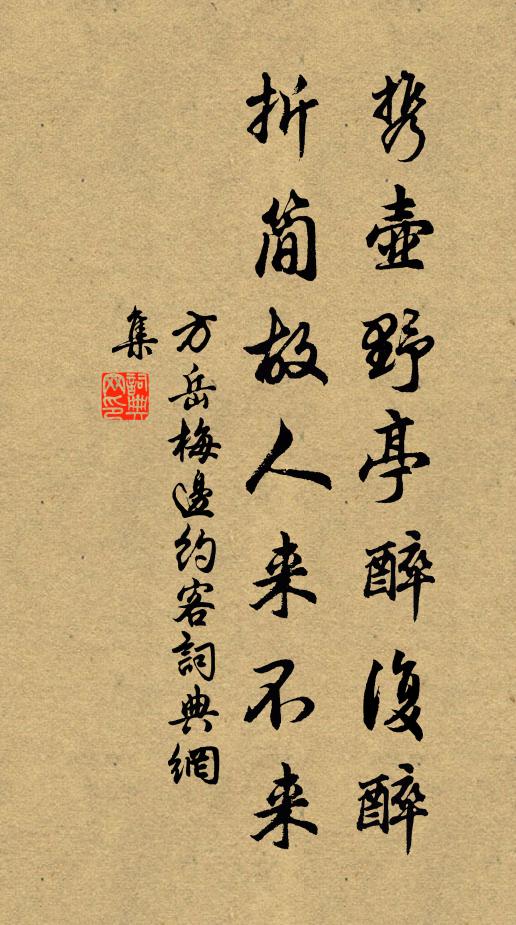 携壺野亭醉復醉
折简故人来不来
方岳梅邊約客詞典網
集
詞典網印